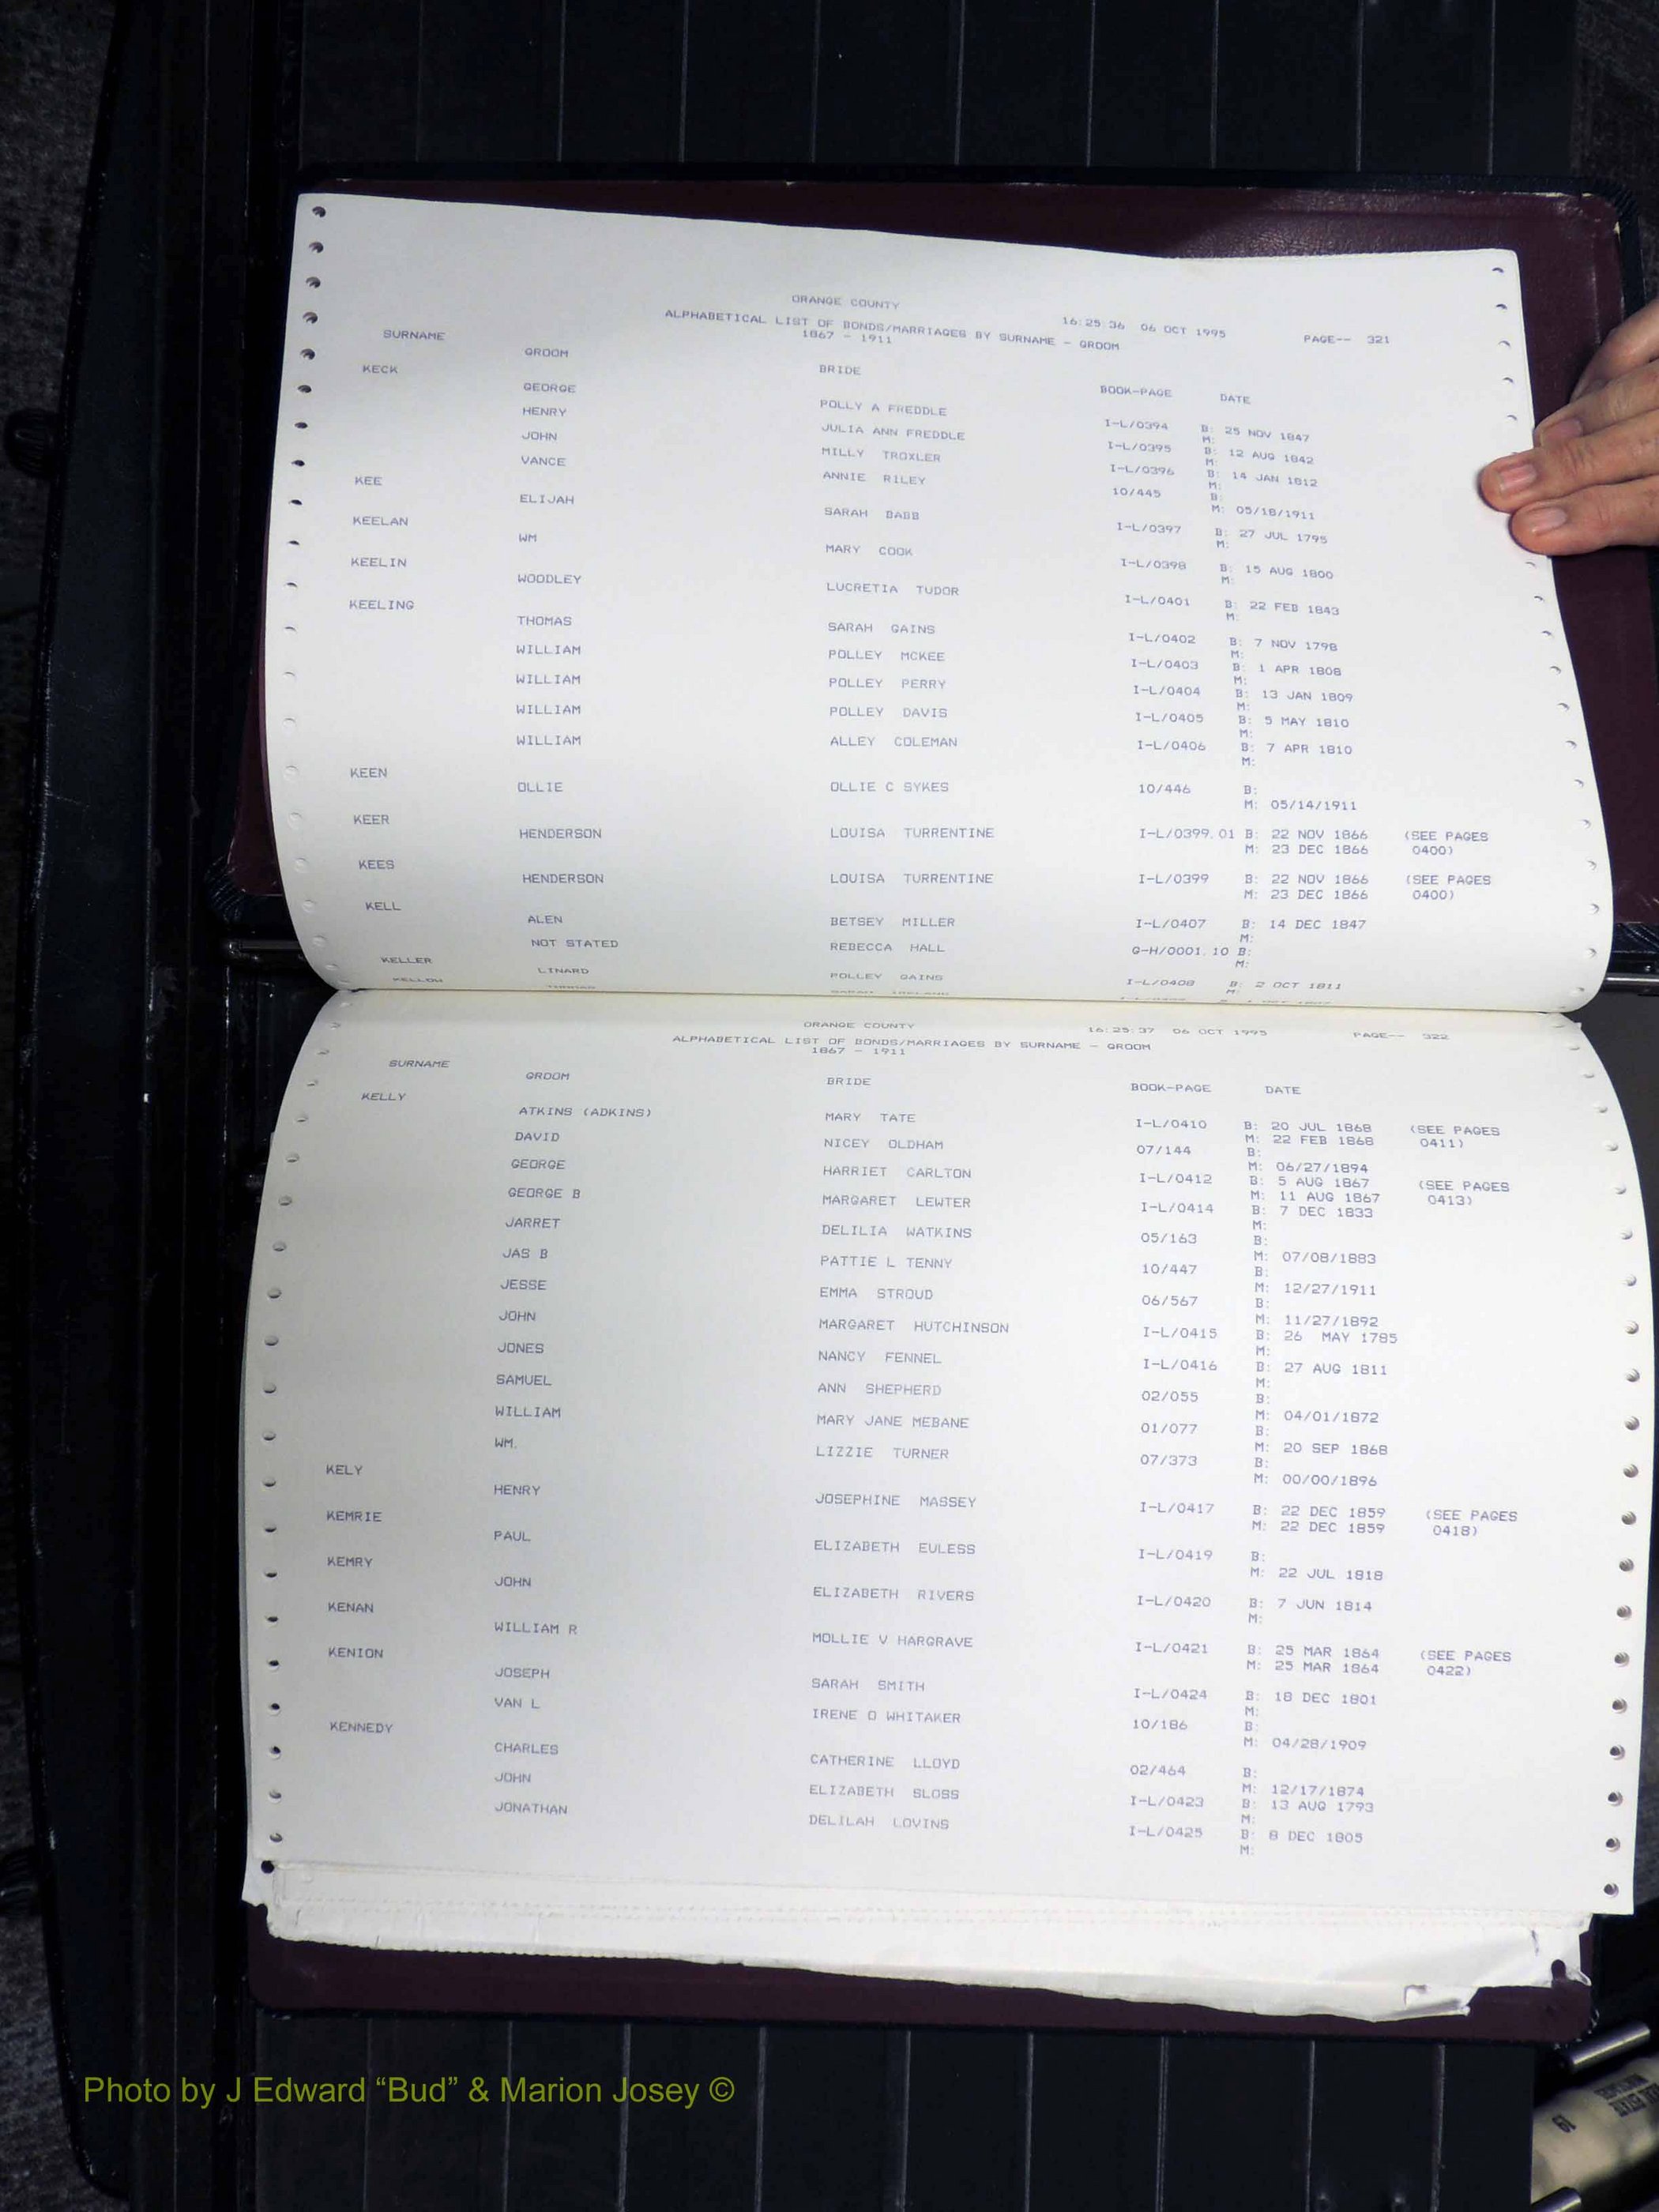 ORANGE COUNTY 16:25:36 06 OCT 1995 PAGE-- 321
ALPHABETICAL LIST OF BONDS/MARRIAGES BY SURNAME - GROOM
1867 - 1911
SURNAME GROOM BRIDE BOOK-PAGE DATE
KECK
GEORGE POLLY A FREDDLE I-L/0394 B: 25 NOV 1847
M:
HENRY JULIA ANN FREDDLE I-L/0395 B: 12 AUG 1842
M:
JOHN MILLY TROXLER I-L/0396 B: 14 JAN 1812
M:
VANCE ANNIE RILEY 10/445 B:
M: 05/18/1911
KEE
ELIJAH SARAH BABB I-L/0397 B: 27 JUL 1795
M:
KEELAN
WM MARY COOK I-L/0398 B: 15 AUG 1800
M:
KEELIN
WOODLEY LUCRETIA TUDOR I-L/0401 B: 22 FEB 1843
M:
KEELING
THOMAS SARAH GAINS I-L/0402 B: 7 NOV 1798
M:
WILLIAM POLLEY MCKEE I-L/0403 B: 1 APR 1808
M:
WILLIAM POLLEY PERRY I-L/0404 B: 13 JAN 1809
M:
WILLIAM POLLEY DAVIS I-L/0405 B: 5 MAY 1810
M:
WILLIAM ALLEY COLEMAN I-L/0406 B: 7 APR 1810
M:
KEEN
OLLIE OLLIE C SYKES 10/446 B:
M: 05/14/1911
KEER
HENDERSON LOUISA TURRENTINE I-L/0399.01 B: 22 NOV 1866 (SEE PAGES
M: 23 DEC 1866 0400)
KEES
HENDERSON LOUISA TURRENTINE I-L/0399 B: 22 NOV 1866 (SEE PAGES
M: 23 DEC 1866 0400)
KELL
ALEN BETSEY MILLER I-L/0407 B: 14 DEC 1847
M:
NOT STATED REBECCA HALL G-H/0001.10 B:
M:
KELLER
LINARD POLLEY GAINS I-L/0408 B: 2 OCT 1811
M:
KELLOW
ORANGE COUNTY 16:25:37 06 OCT 1995 PAGE-- 322
ALPHABETICAL LIST OF BONDS/MARRIAGES BY SURNAME - GROOM
1867 - 1911
SURNAME GROOM BRIDE BOOK-PAGE DATE
KELLY
ATKINS (ADKINS) MARY TATE I-L/0410 B: 20 JUL 1868 (SEE PAGES
M: 22 FEB 1868 0411)
DAVID NICEY OLDHAM 07/144 B:
M: 06/27/1894
GEORGE HARRIET CARLTON I-L/0412 B: 5 AUG 1867 (SEE PAGES
M: 11 AUG 1867 0413)
GEORGE B MARGARET LEWTER I-L/0414 B: 7 DEC 1833
M:
JARRET DELILIA WATKINS 05/163 B:
M: 07/08/1883
JAS B PATTIE L TENNY 10/447 B:
M: 12/27/1911
JESSE EMMA STROUD 06/567 B:
M: 11/27/1892
JOHN MARGARET HUTCHINSON I-L/0415 B: 26 MAY 1785
M:
JONES NANCY FENNEL I-L/0416 B: 27 AUG 1811
M:
SAMUEL ANN SHEPHERD 02/055 B:
M: 04/01/1872
WILLIAM MARY JANE MEBANE 01/077 B:
M: 20 SEP 1868
WM. LIZZIE TURNER 07/373 B:
M: 00/00/1896
KELY
HENRY JOSEPHINE MASSEY I-L/0417 B: 22 DEC 1859 (SEE PAGES
M: 22 DEC 1859 0418)
KEMRIE
PAUL ELIZABETH EULESS I-L/0419 B:
M: 22 JUL 1818
KEMRY
JOHN ELIZABETH RIVERS I-L/0420 B: 7 JUN 1814
M:
KENAN
WILLIAM R MOLLIE V HARGRAVE I-L/0421 B: 25 MAR 1864 (SEE PAGES
M: 25 MAR 1864 0422)
KENION
JOSEPH SARAH SMITH I-L/0424 B: 18 DEC 1801
M:
VAN L IRENE O WHITAKER 10/186 B:
M: 04/28/1909
KENNEDY
CHARLES CATHERINE LLOYD 02/464 B:
M: 12/17/1874
JOHN ELIZABETH SLOSS I-L/0423 B: 13 AUG 1793
M:
JONATHAN DELILAH LOVINS I-L/0425 B: 8 DEC 1805
M:
Photo by J Edward “Bud” & Marion Josey ©